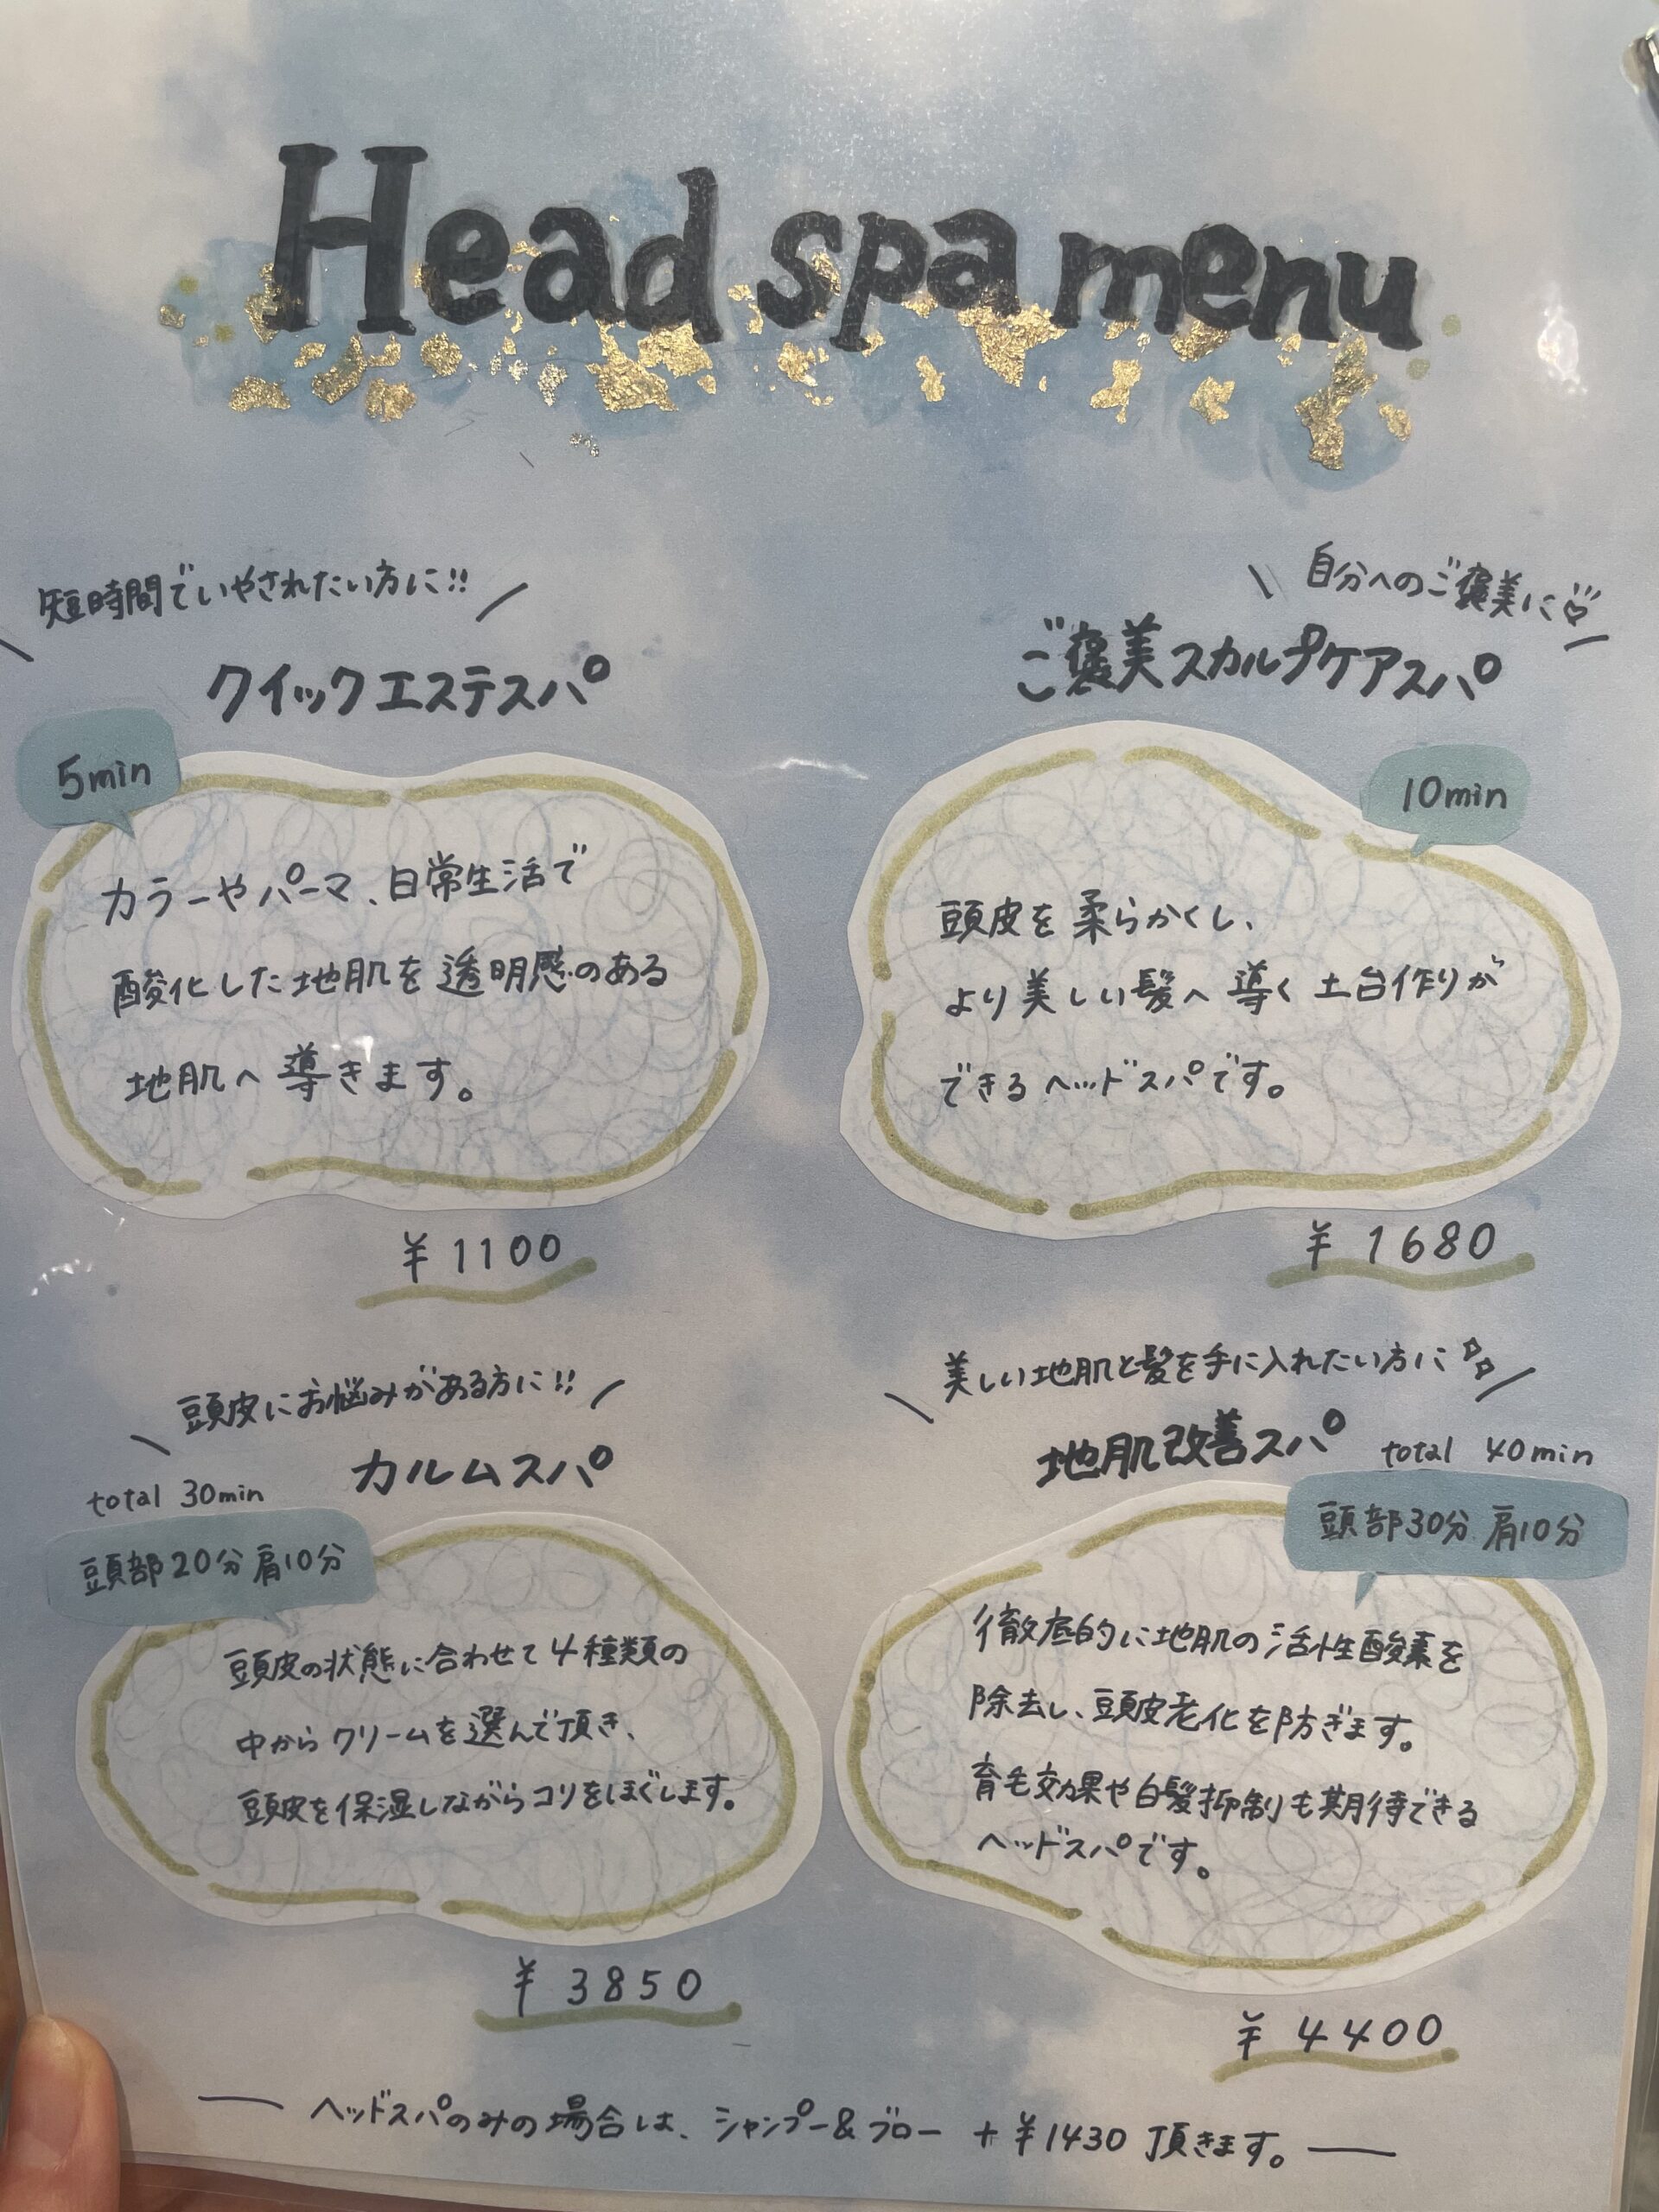 Head spa menu
短時間でいやされたい方に!!
クイックエステスパ
5min
カラーやパーマ、日常生活で
酸化した地肌を透明感のある
地肌へ導きます。
¥1100
自分へのご褒美に♡
ご褒美スカルプケアスパ
10min
頭皮を柔らかくし、
より美しい髪へ導く土台作りが
できるヘッドスパです。
¥1680
頭皮にお悩みがある方に!!
カルムスパ
total 30min
頭部20分 肩10分
頭皮の状態に合わせて4種類の
中からクリームを選んで頂き、
頭皮を保湿しながらコリをほぐします。
¥3850
美しい地肌と髪を手に入れたい方に
地肌改善スパ
total 40min
頭部30分 肩10分
徹底的に地肌の活性酸素を
除去し、頭皮老化を防ぎます。
育毛効果や白髪抑制も期待できる
ヘッドスパです。
¥4400
ヘッドスパのみの場合は、シャンプー&ブロー +¥1430 頂きます。